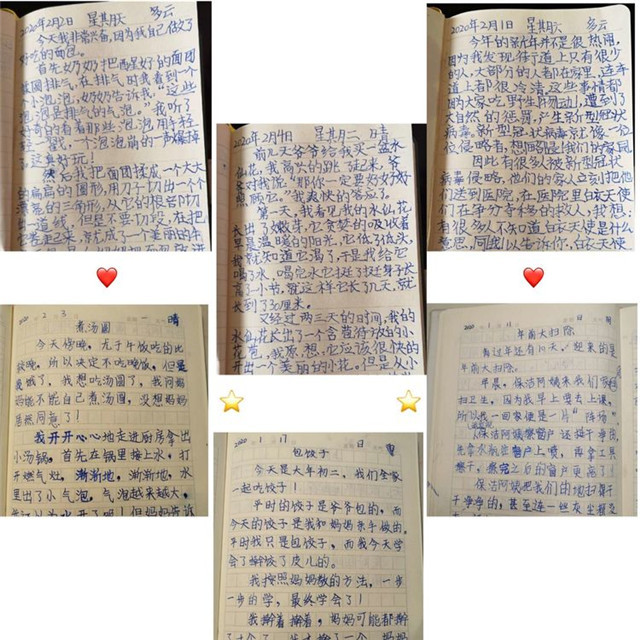 2020年2月2日 星期天 多云
今天我非常兴奋,因为我自己做了
好吃的面包。
首先奶奶把醒好的面团
放回排气,在排气时我看到一个
个小泡泡,奶奶告诉我:"这些
泡泡是排气的气泡。"我听了
好奇的看看那些泡泡用手轻
轻一戳,一个泡泡嘭的一声爆掉
了,这真好玩!
然后我把面团揉成一个大大
的扁扁的圆形,用刀子切出一个个
薄薄的三角形,从它的根部切
出一道线,但是不要切段,在把
它卷起来,就成了一个美丽的牛
2020年2月4日 星期二 晴
前几天爷爷给我买一盆水
仙花,我高兴的跳了起来,爷
爷对我说:"那你一定要好好照
顾它。"我爽快的答应了。
第一天,我看见我的水仙花
长出了嫩芽,它贪婪的吸收着
早晨温暖的阳光,它低了低头,
我就知道它渴了,于是我给它
喝了水,喝完水它挺了挺身子长
高了小节,就这样它长了几天,就
长到了30厘米。
又经过两三天的时间,我的
水仙花长出了一个含苞待放的小
花苞,我原想,它应该很快的
开出一个美丽的小花。但是从小
2020年2月1日 星期六 多云
今年的新年并不是很热闹,
因为我发现街道上只有很少
的人,大部分的人都在家里,连车
道上都很冷清,这些事情都
因为大家吃野生动物,遭到了
大自然的惩罚,产生新型冠状
病毒。新型冠状病毒就像一位
位侵略者,想回到我们的家园
因此有很多人被新型冠状
病毒侵略,他们的家人立刻把他
们送到医院,在医院里白衣天使
们在争分夺秒的救人,我想:
有很多人不知道白衣天使是什么
意思,同我以告诉你,白衣天使
2020 2 3 一 晴
煮汤圆
今天傍晚,尤于午饭吃的比
较晚,所以决定不吃晚饭,但是
我饿了,我想吃汤圆了,我问妈
妈能不能自己煮汤圆,没想妈妈
居然同意了!
我开开心心地走进厨房拿出
小汤锅,首先在锅里接上水,打
开燃气灶,渐渐地,渐渐地,水
里出了小气泡,气泡越来越大,
2020 1 17 日
包饺子
今天是大年初二,我们全家
一起吃饺子!
平时的饺子是爷爷包的,而
今天的饺子是我和妈妈亲手做的,
平时我只是包饺子,而我今天学
会了擀饺子皮儿的。
我按照妈妈教的方法,一步
一步的学,最终学会了!
我擀着擀着,妈妈可能都擀
2020 1 日 晴
年前大扫除
有过年还有10天,迎来的是
年前大扫除。
早晨,保洁阿姨来我们家
扫卫生,因为我早上要去上课,
所以我一回家便是一片"阵场"
保洁阿姨擦窗户还擦干净的,
先拿水机在窗户上喷,再拿工具
擦干,擦完之后的窗户更亮了!
保洁阿姨把我们的地扫得干
干净净的,甚至连一丝灰尘都没